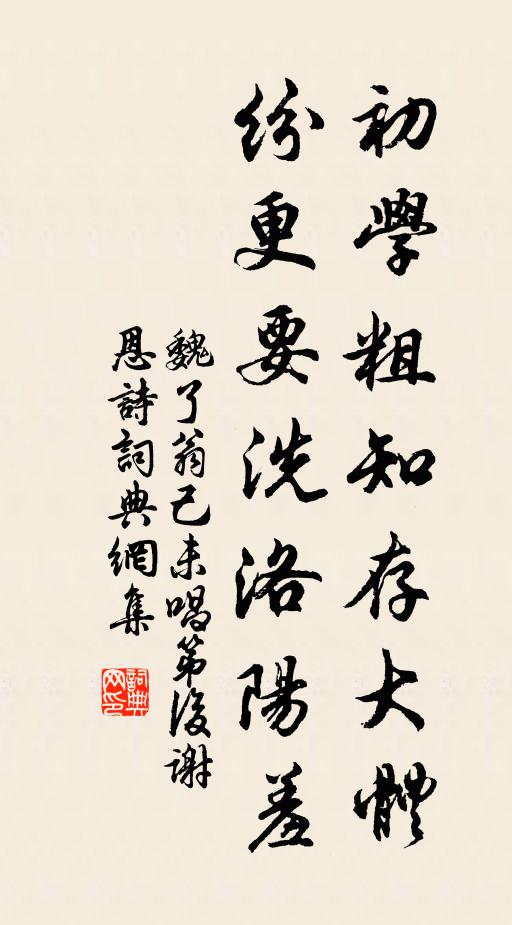 初學粗知存大體
紛更要洗洛陽羞
魏了翁己未唱第後謝
恩詩詞典網集
詞典網印